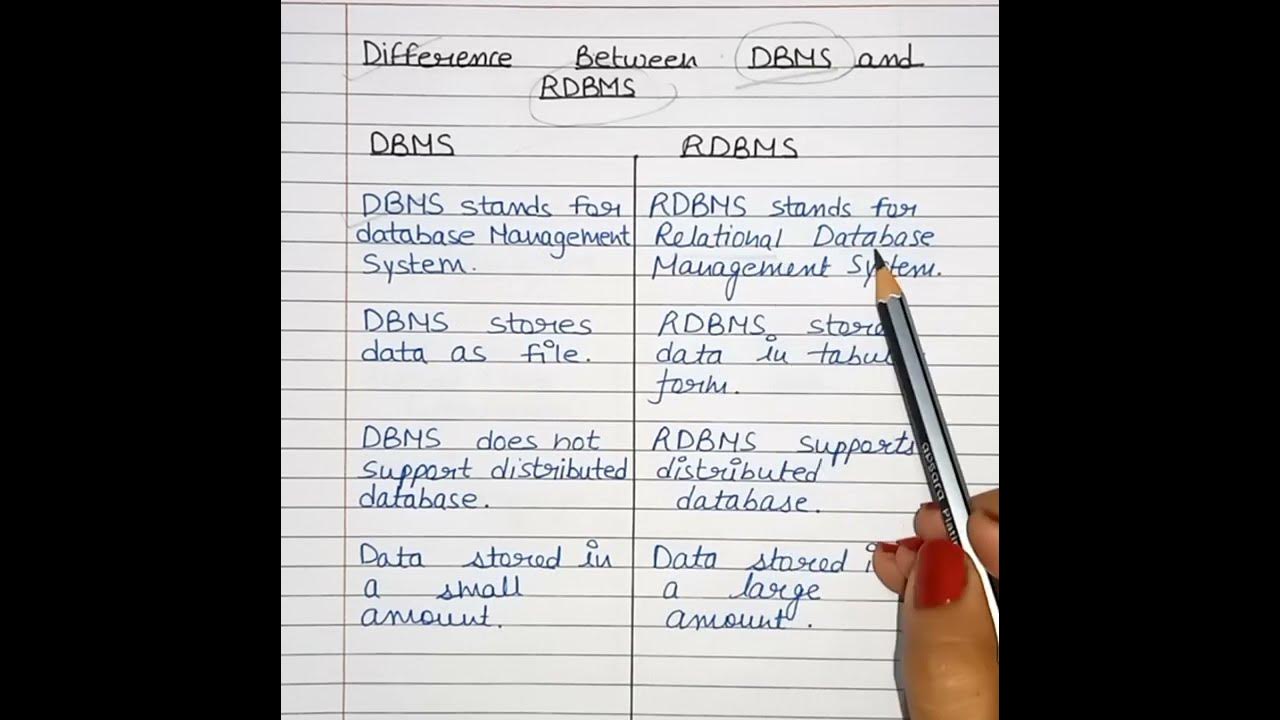 Difference Between DBMS and
RDBMS
DBMS
DBMS stands for
database Management
System.
DBMS stores
data as file.
DBMS does not
support distributed
database.
Data stored in
a small
amount.
RDBMS
RDBMS stands for
Relational Database
Management System.
RDBMS
data in
form.
RDBMS supports
distributed
database.
Data stored
a large
amount.
apsara